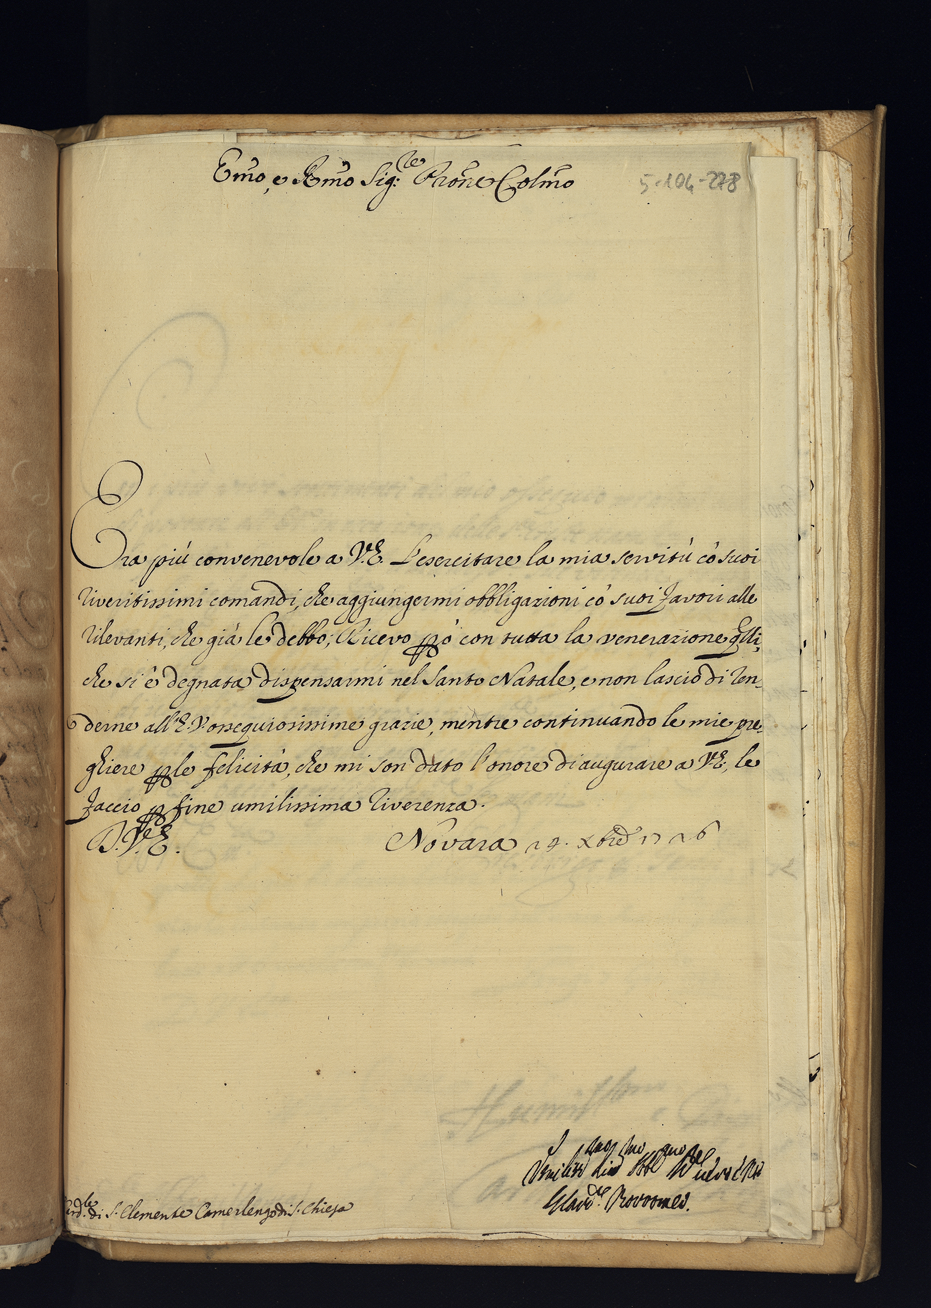 Emo, e Rmo Sig:re Prone Colmo
5-104-278
Era più convenevole a V.E. l'esercitare la mia servitù có suoi
riveritissimi comandi, che aggiungermi obbligazioni có suoi favori alle
rilevanti, che già le debbo; Ricevo ppó con tutta la venerazione qlli,
che si è degnata dispensarmi nel Santo Natale, e non lascio di ren-
derne all'E.V. ossequiosissime grazie, mentre continuando le mie pre-
ghiere p le felicità, che mi son dato l'onore di augurare a V.E., le
faccio p fine umilissima riverenza.
D. V.E. Novara 29. Xbre 1726
Card.le di S. Clemente Camerlengo di S. Chiesa